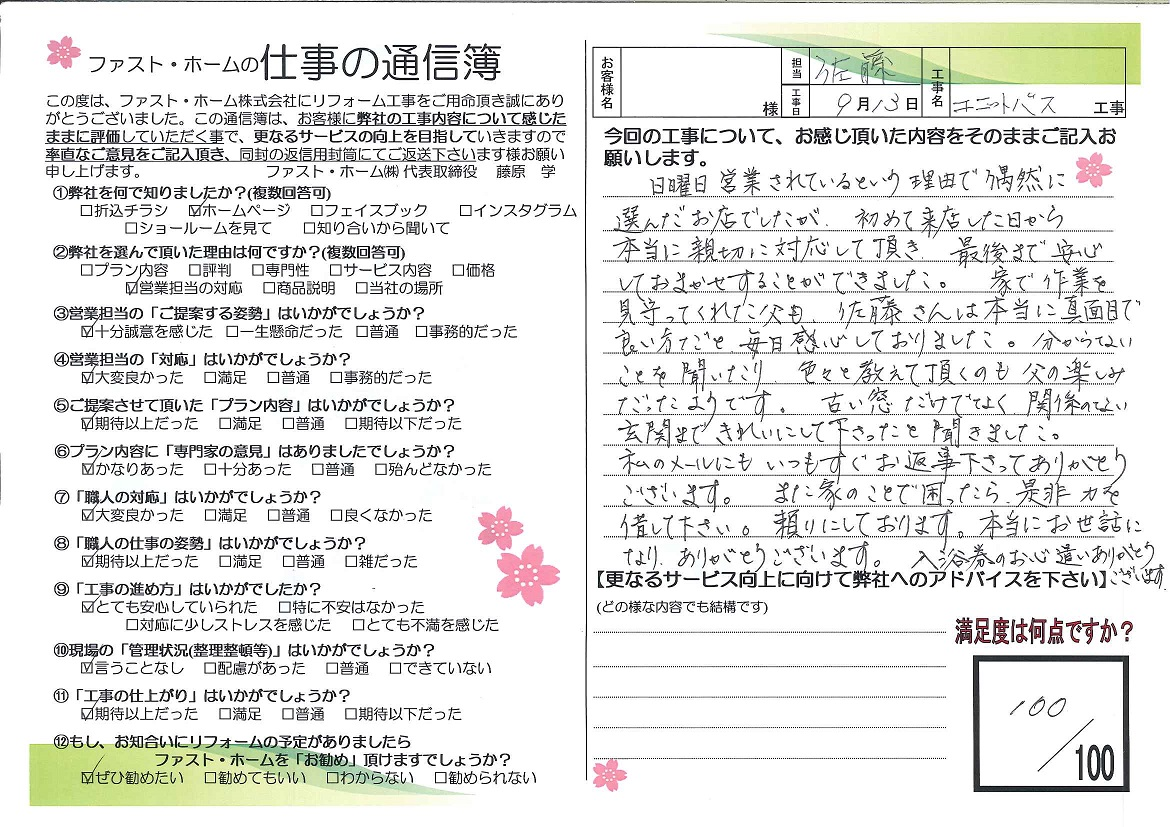 ファスト・ホームの仕事の通信簿
この度は、ファスト・ホーム株式会社にリフォーム工事をご用命頂き誠にあり
がとうございました。この通信簿は、お客様に弊社の工事内容について感じた
ままに評価していただく事で、更なるサービスの向上を目指していきますので
率直なご意見をご記入頂き、同封の返信用封筒にてご返送下さいます様お願い
申し上げます。　ファスト・ホーム㈱ 代表取締役　藤原　学
①弊社を何で知りましたか？(複数回答可)
□折込チラシ ☑ホームページ □フェイスブック □インスタグラム
□ショールームを見て □知り合いから聞いて
②弊社を選んで頂いた理由は何ですか？(複数回答可)
□プラン内容 □評判 □専門性 □サービス内容 □価格
☑営業担当の対応 □商品説明 □当社の場所
③営業担当の「ご提案する姿勢」はいかがでしょうか？
☑十分誠意を感じた □一生懸命だった □普通 □事務的だった
④営業担当の「対応」はいかがでしょうか？
☑大変良かった □満足 □普通 □事務的だった
⑤ご提案させて頂いた「プラン内容」はいかがでしょうか？
☑期待以上だった □満足 □普通 □期待以下だった
⑥プラン内容に「専門家の意見」はありましたでしょうか？
☑かなりあった □十分あった □普通 □殆んどなかった
⑦「職人の対応」はいかがでしょうか？
☑大変良かった □満足 □普通 □良くなかった
⑧「職人の仕事の姿勢」はいかがでしょうか？
☑期待以上だった □満足 □普通 □雑だった
⑨「工事の進め方」はいかがでしたか？
☑とても安心していられた □特に不安はなかった
□対応に少しストレスを感じた □とても不満を感じた
⑩現場の「管理状況(整理整頓等)」はいかがでしょうか？
☑言うことなし □配慮があった □普通 □できていない
⑪「工事の仕上がり」はいかがでしょうか？
☑期待以上だった □満足 □普通 □期待以下だった
⑫もし、お知合いにリフォームの予定がありましたら
ファスト・ホームを「お勧め」頂けますでしょうか？
☑ぜひ勧めたい □勧めてもいい □わからない □勧められない
お客様名 様 担当 佐藤 工事日 9月13日 工事名 ユニットバス 工事
今回の工事について、お感じ頂いた内容をそのままご記入お
願いします。
日曜日営業されているという理由で偶然に
選んだお店でしたが、初めて来店した日から
本当に親切に対応して頂き、最後まで安心
しておまかせすることができました。 家で作業を
見守ってくれた父も、佐藤さんは本当に真面目で
良い方だと、毎日感心しておりました。分からない
ことを聞いたり、色々と教えて頂くのも父の楽しみ
だったようです。 古い窓だけでなく関係のない
玄関まできれいにして下さったと聞きました。
私のメールにもいつもすぐお返事下さってありがとう
ございます。 また家のことで困ったら、是非力を
借して下さい。頼りにしております。本当にお世話に
なり、ありがとうございます。 入浴券のお心遣いありがとう
ございます。
【更なるサービス向上に向けて弊社へのアドバイスを下さい】
(どの様な内容でも結構です)
満足度は何点ですか？
100/100